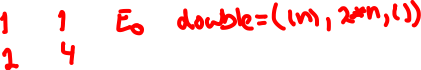 1 1 E₀ double=(in), 2**n, ())
2 4